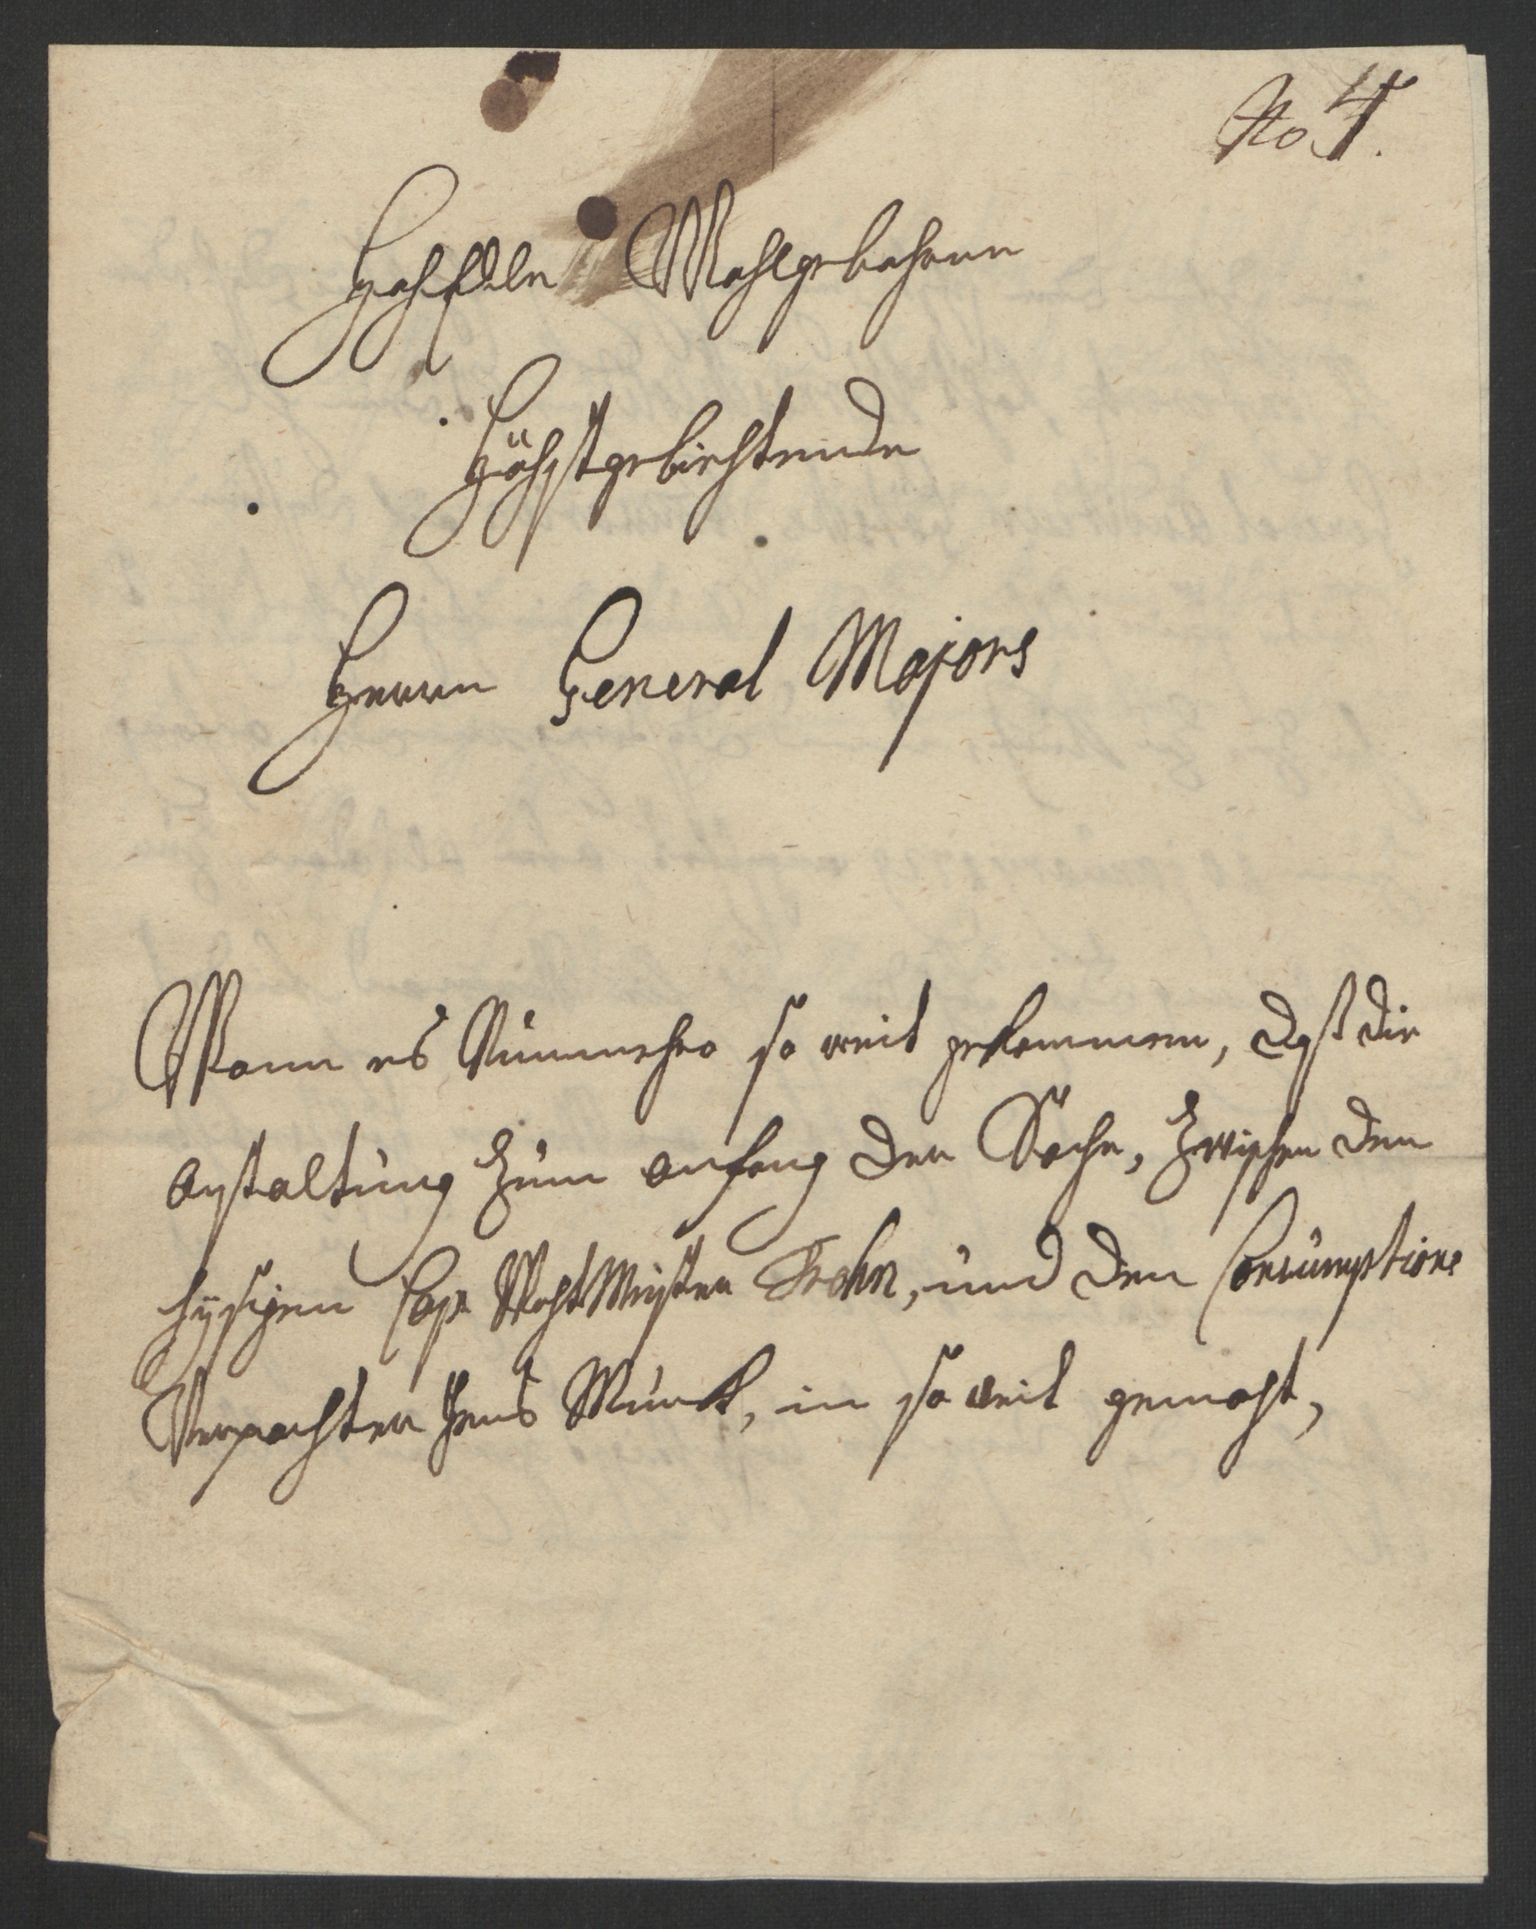 No 4.
Hoch Edle Wohlgebohrne
Höchstgebiehtende
Herrn General Majors
Wann es Nunmehro so weit gekommen, daß die
anstaltung zum anfang der Sache, zwischen dem
hysigen Cap: WachtMeister Trohn, und den Consumptions
Verpachter Jens Munck, in so weit gemacht,